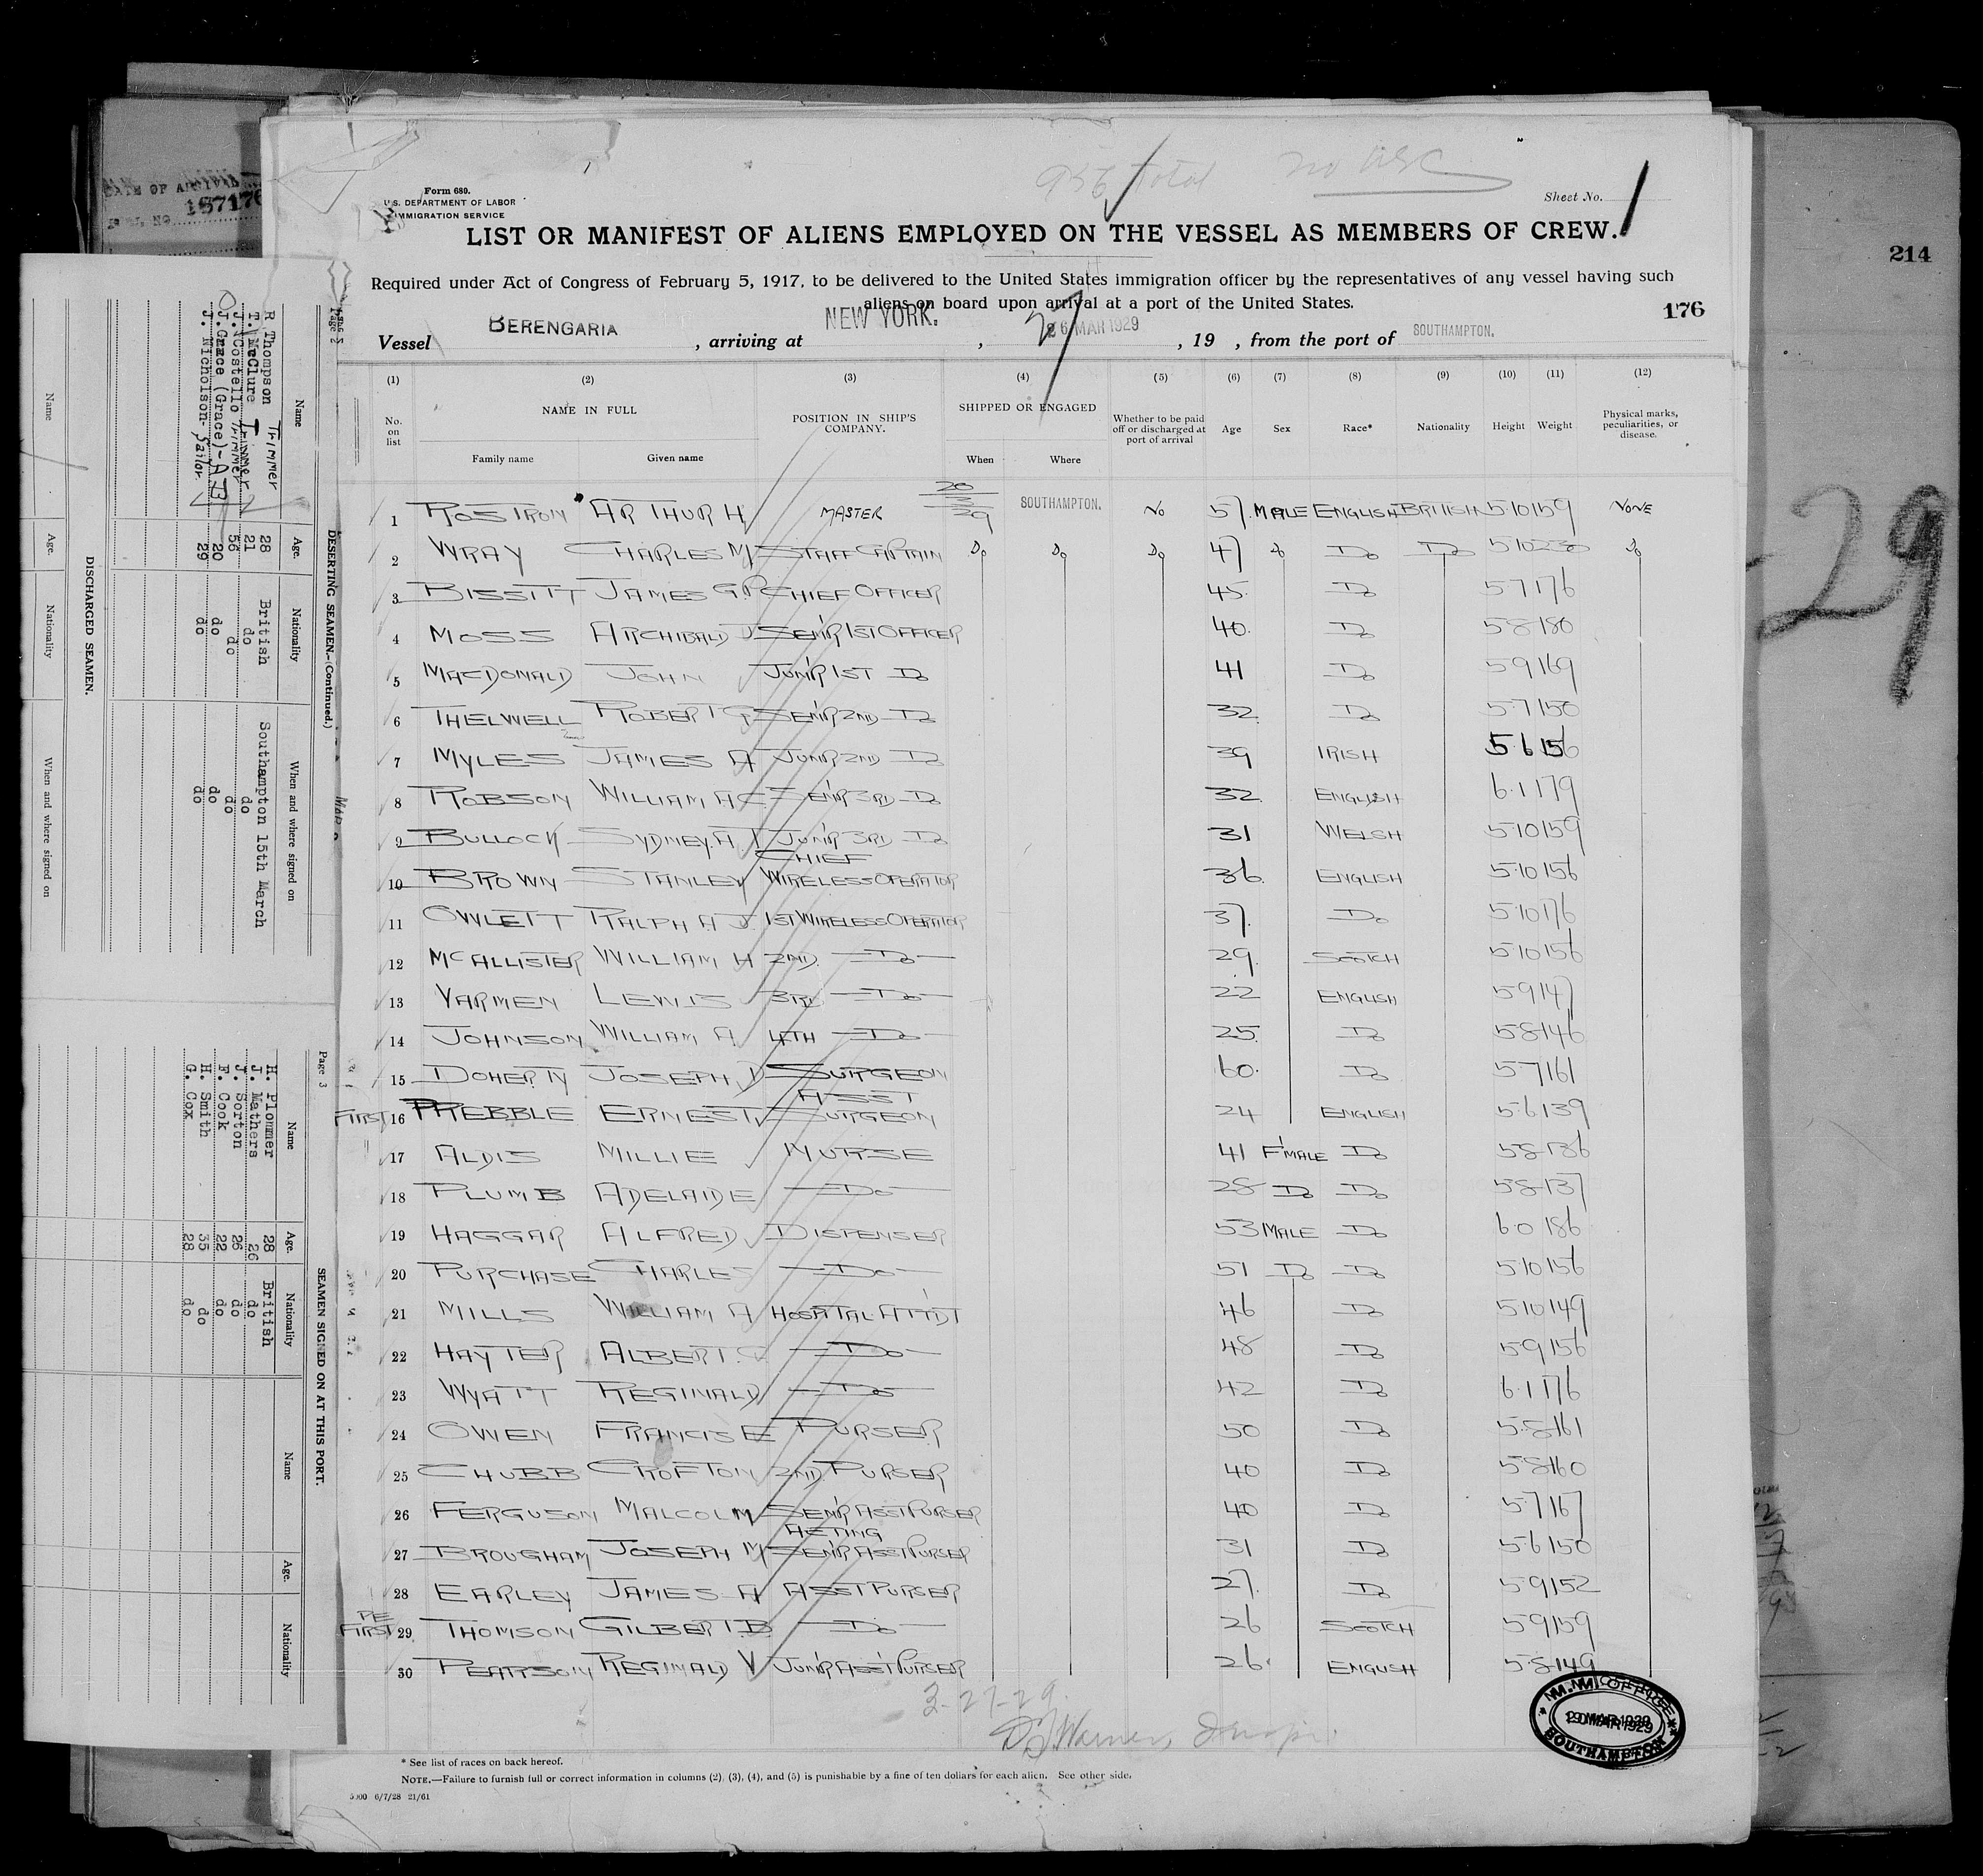 DATE OF ARRIVAL
187176
956 total
no USC
Form 689.
U.S. DEPARTMENT OF LABOR
IMMIGRATION SERVICE
Sheet No. 1
LIST OR MANIFEST OF ALIENS EMPLOYED ON THE VESSEL AS MEMBERS OF CREW.
Required under Act of Congress of February 5, 1917, to be delivered to the United States immigration officer by the representatives of any vessel having such
aliens on board upon arrival at a port of the United States.
214
176
29
Vessel BERENGARIA, arriving at NEW YORK., 26 MAR 1929, 19 , from the port of SOUTHAMPTON.
(1) (2) (3) (4) (5) (6) (7) (8) (9) (10) (11) (12)
No. on list NAME IN FULL Family name Given name POSITION IN SHIP'S COMPANY. SHIPPED OR ENGAGED When Where Whether to be paid off or discharged at port of arrival Age Sex Race* Nationality Height Weight Physical marks, peculiarities, or disease.
1 ROSTRON ARTHUR H MASTER 20/3/29 SOUTHAMPTON. NO 57 MALE ENGLISH BRITISH 5.10 159 NONE
2 WRAY CHARLES M STAFF CAPTAIN Do Do Do 47 do Do Do 5.10 230 Do
3 BISSITT JAMES G P CHIEF OFFICER 45 Do 5.7 176
4 MOSS ARCHIBALD J SEN'R 1ST OFFICER 40 Do 5.8 180
5 MACDONALD JOHN JUN'R 1ST Do 41 Do 5.9 169
6 THELWELL ROBERT G SEN'R 2ND Do 32 Do 5.7 150
7 MYLES JAMES A JUN'R 2ND Do 39 IRISH 5.6 156
8 ROBSON WILLIAM A C SEN'R 3RD Do 32 ENGLISH 6.1 179
9 BULLOCK SYDNEY. A JUN'R 3RD Do 31 WELSH 5.10 159
10 BROWN STANLEY CHIEF WIRELESS OPERATOR 36 ENGLISH 5.10 156
11 OWLETT RALPH A J 1ST WIRELESS OPERATOR 37 Do 5.10 176
12 MCALLISTER WILLIAM H 2ND. Do 29 SCOTCH 5.10 156
13 VARMEN LEWIS 3RD Do 22 ENGLISH 5.9 147
14 JOHNSON WILLIAM A. 4TH Do 25 Do 5.8 146
15 DOHERTY JOSEPH D SURGEON 60 Do 5.7 161
FIRST 16 PREBBLE ERNEST ASST SURGEON 24 ENGLISH 5.6 139
17 ALDIS MILLIE NURSE 41 F'MALE Do 5.8 136
18 PLUMB ADELAIDE Do 28 Do Do 5.8 137
19 HAGGAR ALFRED DISPENSER 53 MALE Do 6.0 186
20 PURCHASE CHARLES Do 51 Do Do 5.10 156
21 MILLS WILLIAM A HOSPITAL ATT'DT 46 Do 5.10 149
22 HAYTER ALBERT. G Do 48 Do 5.9 156
23 WYATT REGINALD Do 42 Do 6.1 176
24 OWEN FRANCIS E PURSER 50 Do 5.8 161
25 CHUBB CROFTON 2ND. PURSER 40 Do 5.8 160
26 FERGUSON MALCOLM SEN'R ASST PURSER 40 Do 5.7 167
27 BROUGHAM JOSEPH M ACTING SEN'R ASST PURSER 31 Do 5.6 150
28 EARLEY JAMES A ASST PURSER 27. Do 5.9 152
RE FIRST 29 THOMSON GILBERT. B Do 26 SCOTCH 5.9 159
30 PEARSON REGINALD V JUN'R ASST PURSER 26 ENGLISH 5.8 149
3-27-29
* See list of races on back hereof.
NOTE.—Failure to furnish full or correct information in columns (2), (3), (4), and (5) is punishable by a fine of ten dollars for each alien. See other side.
5000 6/7/28 21/61
M.M. OFFICE
20 MAR 1929
SOUTHAMPTON
Page 2
DESERTING SEAMEN.—(Continued.)
Name Age. Nationality When and where signed on
R Thompson Trimmer 28 British Southampton 15th March
T. McClure Trimmer 21 do do
J. Costello Trimmer 56 do do
J. Grace (Grace)- A B 20 do do
J. Nicholson- Sailor 29 do do
DISCHARGED SEAMEN.
Name Age. Nationality When and where signed on
Page 3
SEAMEN SIGNED ON AT THIS PORT.
Name Age. Nationality Name Age. Nationality
H. Plommer 28 British
J. Mathers 26 do
J. Sorton 26 do
F. Cook 22 do
H. Smith 35 do
G. Cox 28 do